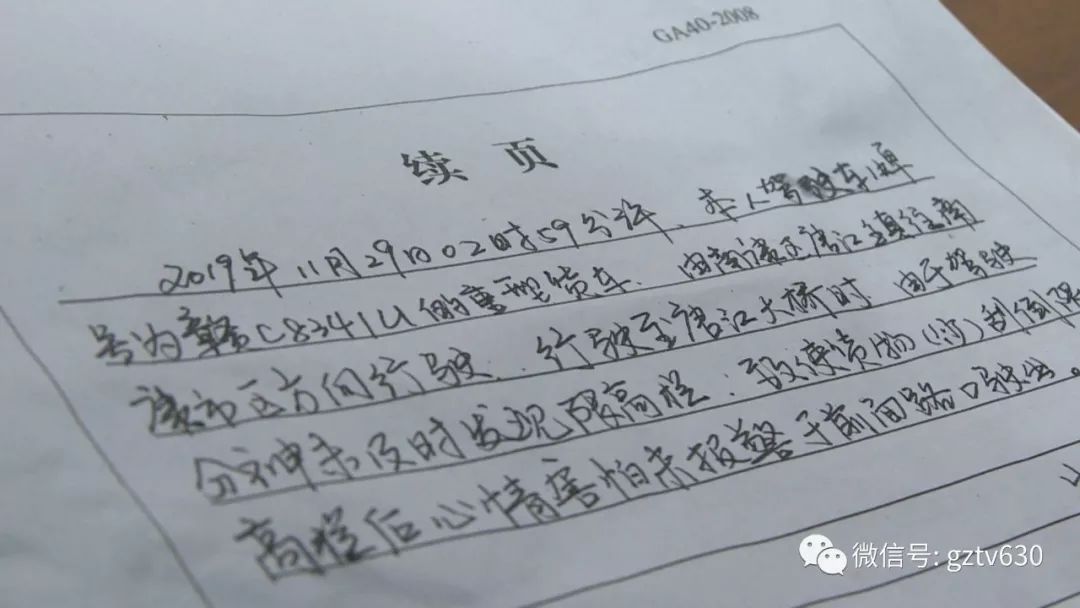 GA40-2008
续 页
2019年11月29日02时59分许、本人驾驶车牌
号为赣C8341U的重型货车、由南康区唐江镇往南
康市区方向行驶、行驶至唐江大桥时 由于驾驶
分神未及时发现限高栏、致使货物(沙)刮倒限
高栏后心情害怕未报警于前面路口驶出。
微信号: gztv630